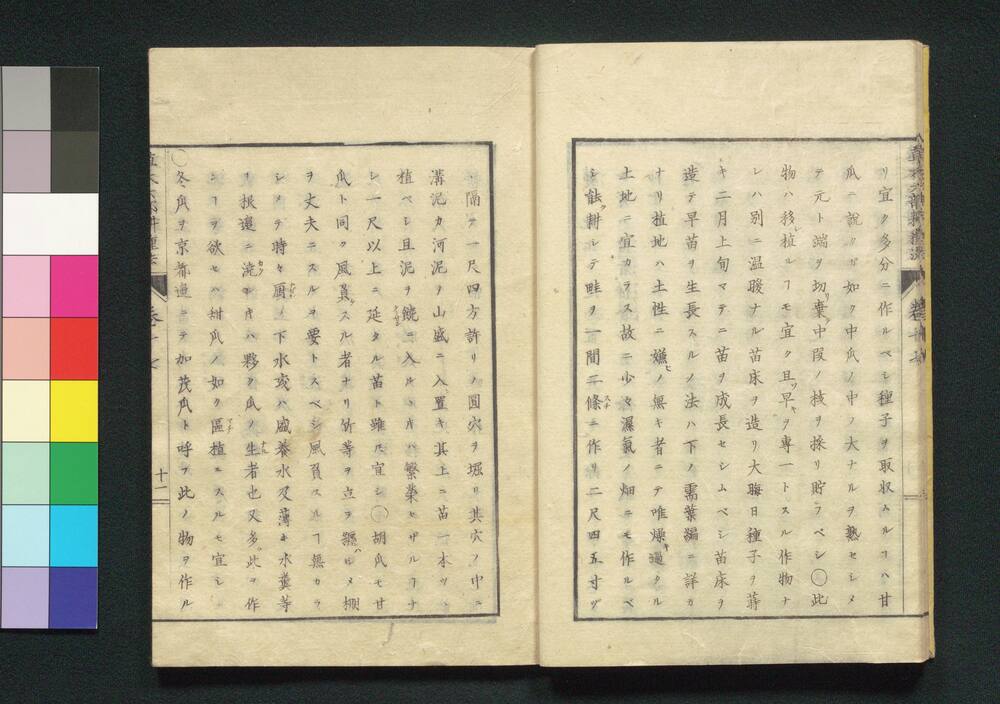 リ宜ク多分ニ作ルベシ種子ヲ取収ムルヿハ甘
瓜ニ説クガ如ク中瓜ノ中ノ大ナルヲ熟セシメ
テ元ト端ヲ切棄中段ノ核ヲ採リ貯フベシ○此
物ハ移植ルヿモ宜ク且早キヲ専一トスル作物ナ
レハ別ニ温暖ナル苗床ヲ造リ大晦日種子ヲ蒔
キ二月上旬マテニ苗ヲ成長セシムベシ苗床ヲ
造テ早苗ヲ生長スルノ法ハ下ノ需葉編ニ詳カ
ナリ植地ハ土性ニ嫌ノ無キ者ニテ唯燥過クル
土地ニ宜カラス故ニ少々濕氣ノ畑ニモ作ルベ
シ能耕シテ畦ヲ一間二條ニ作リ二尺四五寸ヅ
ヽ隔テ一尺四方許リノ圓穴ヲ堀リ其穴ノ中ニ
溝泥カ河泥ヲ山盛ニ入置キ其上ニ苗一本ツヽ
植ベシ且泥ヲ饒ニ入ルヽ片ハ繁榮セザルヿナ
シ一尺以上ニ延タル苗ト雖𪜈宜シ○胡瓜モ甘
瓜ト同ク風負スル者ナリ竹等ヲ立ヲ纏ハシメ棚
ヲ丈夫ニスルヲ要トスベシ風負スルヿ無カラ
シメテ時々厨ノ下水或ハ盛養水又薄キ水糞等
ヲ根邊ニ澆ク片ハ夥ク瓜ノ生者也又多ク此ヲ作
ンヿヲ欲セハ甜瓜ノ如ク區植ニスルモ宜シ
○冬瓜ヲ京都邊ニテ加茂瓜ト呼フ此ノ物ヲ作ル
十二